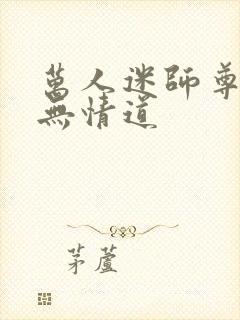 萬人迷師尊
無情道
茅蘆